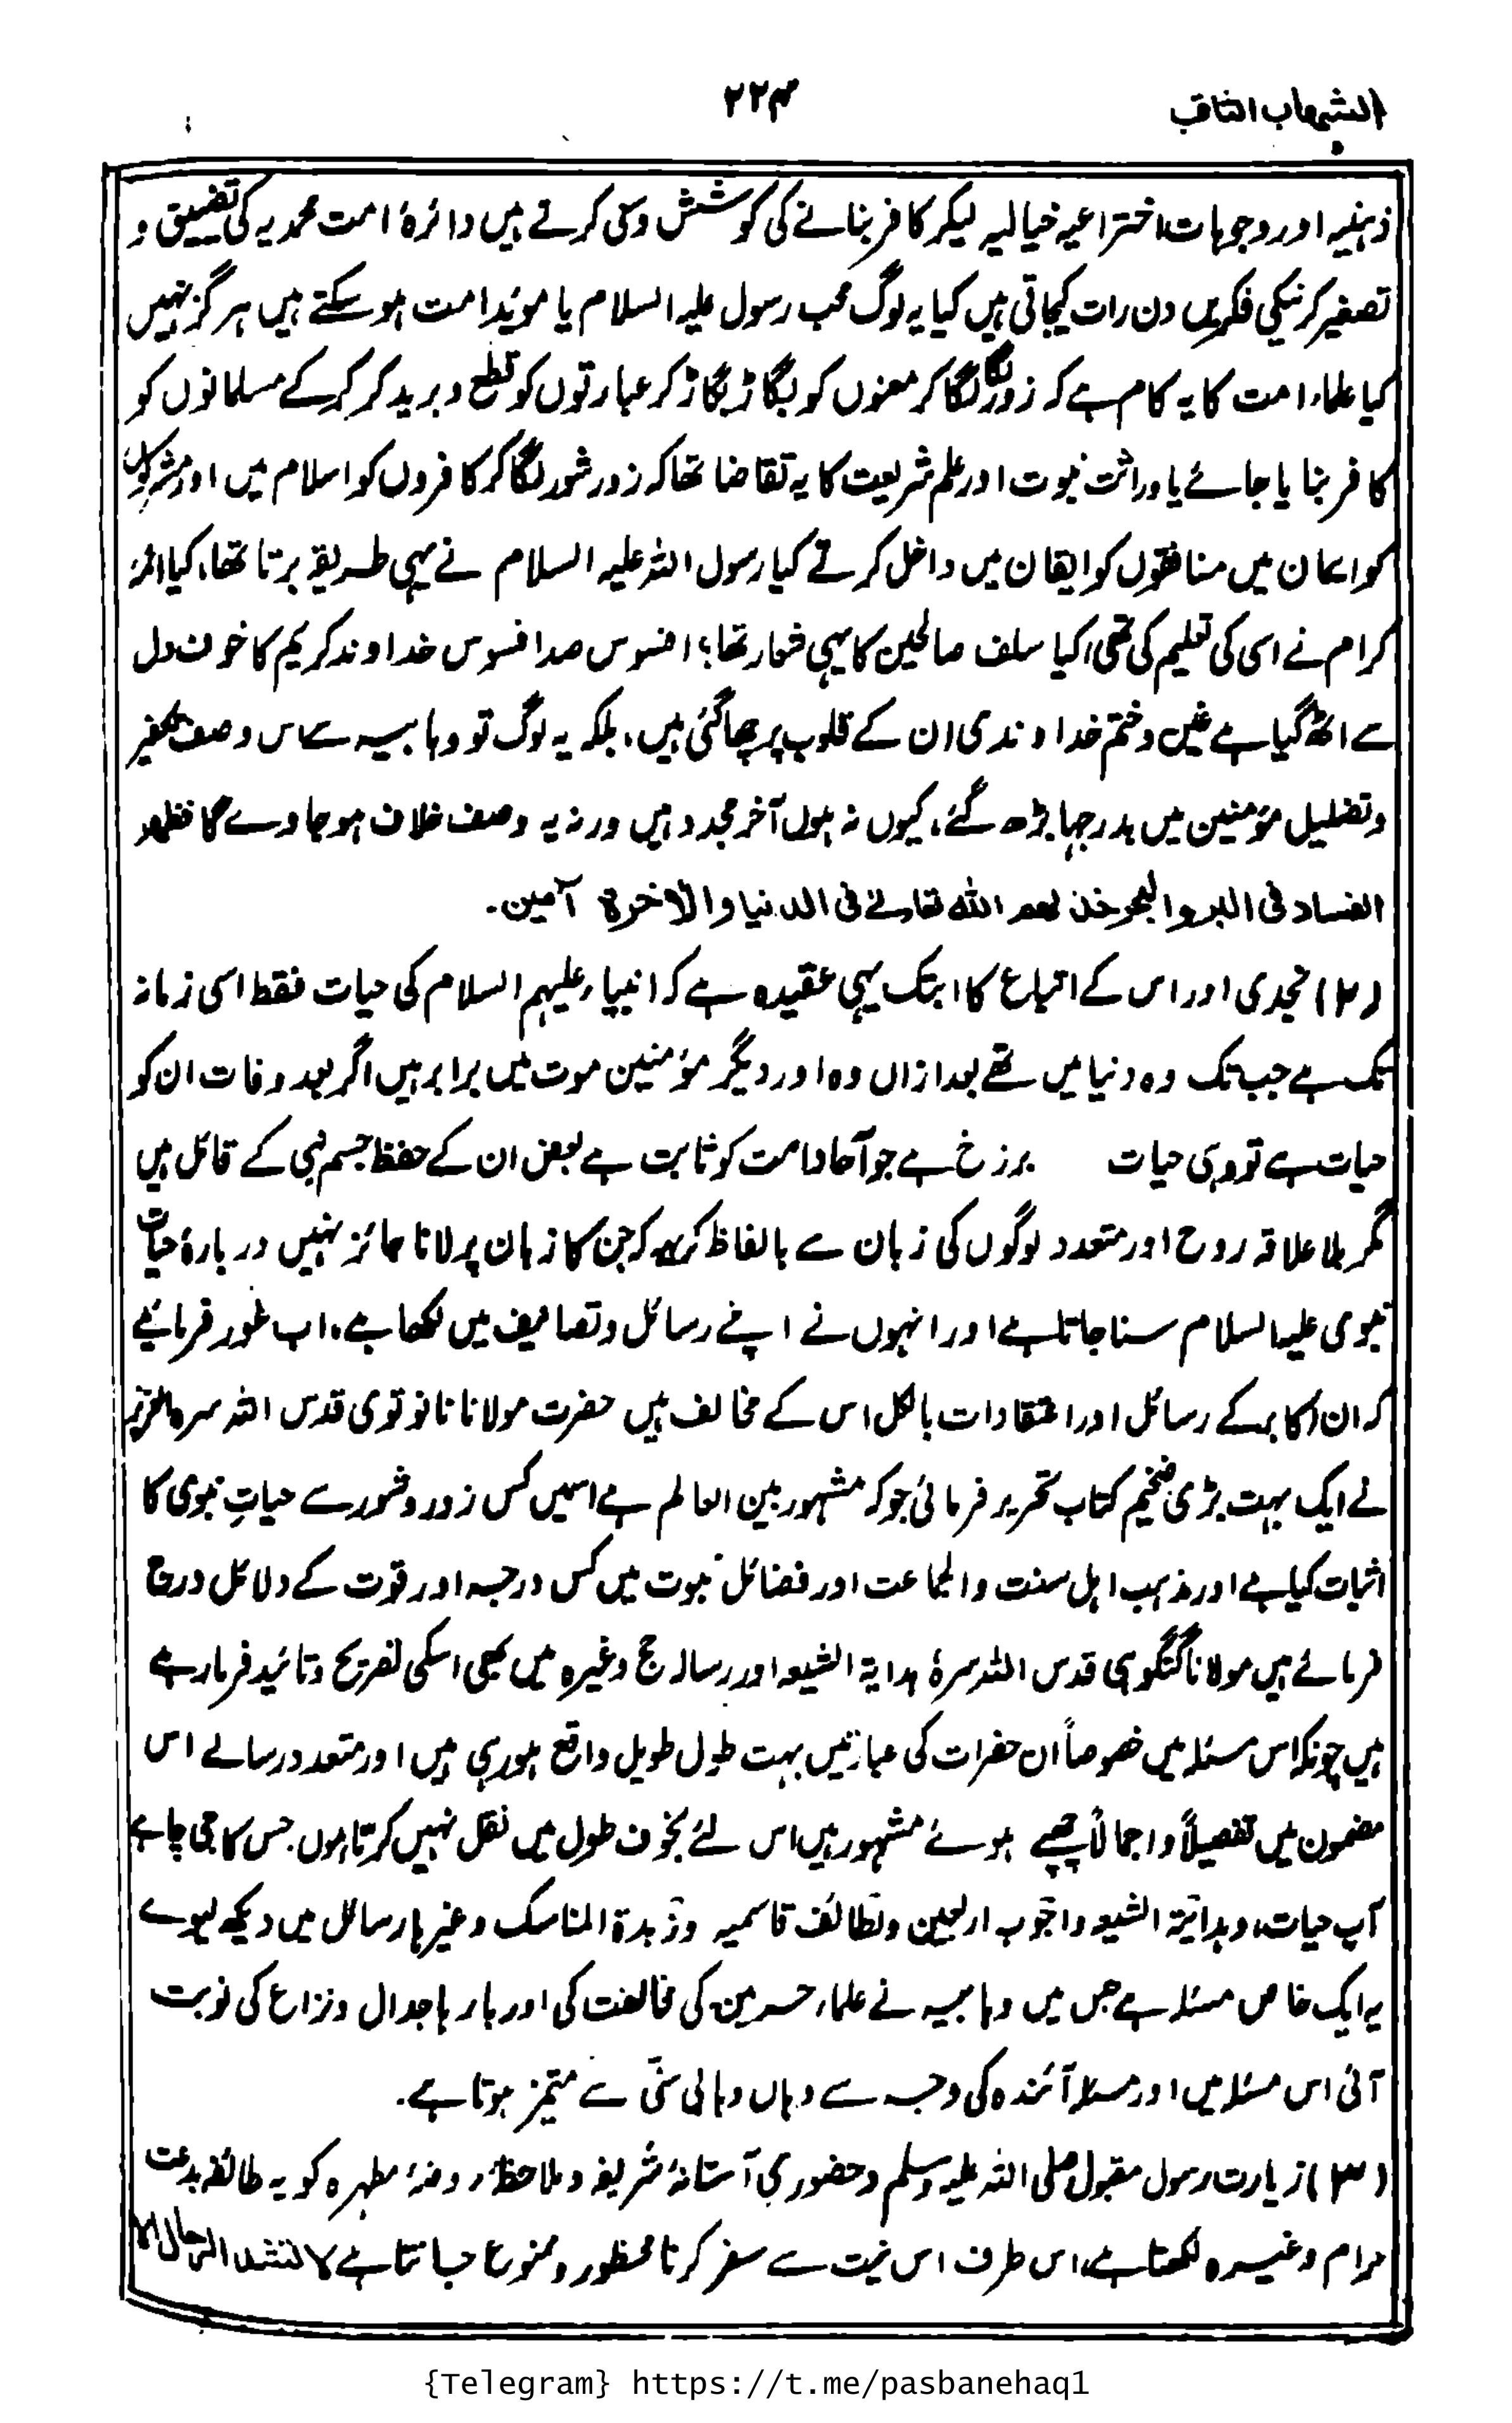 الشہاب الثاقب
۲۲۴
ذہنیہ اور وجوہات اختراعیہ خیالیہ لیکر کافر بنانے کی کوشش وسعی کرتے ہیں دائرۂ امت محمدیہ کی تضییق و
تصغیر کرنیکی فکریں دن رات کیجاتی ہیں کیا یہ لوگ محب رسول علیہ السلام یا موئد امت ہوسکتے ہیں ہرگز نہیں
کیا علماء امت کا یہ کام ہے کہ زور لگا لگا کر معنوں کو بگاڑ بگاڑ کر عبارتوں کو قطع و برید کر کر کے مسلمانوں کو
کافر بنایا جائے یا وراثت نبوت اور علم شریعت کا یہ تقاضا تھا کہ زور شور لگا کر کافروں کو اسلام میں اور مشرکوں
کو ایمان میں منافقوں کو ایقان میں داخل کرتے کیا رسول اللہ علیہ السلام نے یہی طریقہ برتا تھا، کیا ائمہ
کرام نے اسی کی تعلیم کی تھی، کیا سلف صالحین کا یہی شعار تھا؟ افسوس صد افسوس خداوند کریم کا خوف دل
سے اٹھ گیا ہے غین و ختم خداوندی ان کے قلوب پر چھا گئی ہیں، بلکہ یہ لوگ تو وہابیہ سے اس وصف تکفیر
وتضلیل مؤمنین میں بدرجہا بڑھ گئے، کیوں نہ ہوں آخر مجدد ہیں ورنہ یہ وصف خلاف ہوجاوے گا فظهر
الفساد فی البر والبحر خذلهم الله تعالےٰ فی الدنیا والآخرة آمین۔
(۲) نجدی اور اس کے اتباع کا ابتک یہی عقیدہ ہے کہ انبیاء علیہم السلام کی حیات فقط اسی زمانہ
تک ہے جب تک وہ دنیا میں تھے بعد ازاں وہ اور دیگر مؤمنین موت میں برابر ہیں اگر بعد وفات ان کو
حیات ہے تو وہی حیات برزخ ہے جو آحاد امت کو ثابت ہے بعض ان کے حفظ جسم نبی کے قائل ہیں
مگر بلا علاقہ روح اور متعدد لوگوں کی زبان سے بالفاظ کریہہ کہ جن کا زبان پر لانا جائز نہیں دربارۂ حیات
نبوی علیہ السلام سنا جاتا ہے اور انہوں نے اپنے رسائل و تصانیف میں لکھا ہے، اب غور فرمائیے
کہ ان اکابر کے رسائل اور اعتقادات بالکل اس کے مخالف ہیں حضرت مولانا نانوتوی قدس اللہ سرہ العزیز
نے ایک بہت بڑی ضخیم کتاب تحریر فرمائی جو کہ مشہور بین العالم ہے اسمیں کس زور و شور سے حیاتِ نبوی کا
اثبات کیا ہے اور مذہب اہل سنت والجماعت اور فضائل نبوت میں کس درجہ اور قوت کے دلائل درج
فرمائے ہیں مولانا گنگوہی قدس اللہ سرہٗ ہدایۃ الشیعہ اور رسالہ حج وغیرہ میں بھی اسکی تصریح و تائید فرما رہے
ہیں چونکہ اس مسئلہ میں خصوصاً ان حضرات کی عبارتیں بہت طول طویل واقع ہورہی ہیں اور متعدد رسالے اس
مضمون میں تفصیلاً واجمالاً چھپے ہوئے مشہور ہیں اس لئے بخوف طول میں نقل نہیں کرتا ہوں جس کا جی چاہے
آپ حیات، وہدایۃ الشیعہ واجوبہ اربعین ولطائف قاسمیہ وزبدۃ المناسک وغیرہا رسائل میں دیکھ لیوے
یہ ایک خاص مسئلہ ہے جس میں وہابیہ نے علماء حرمین کی مخالفت کی اور بارہا جدال ونزاع کی نوبت
آئی اس مسئلہ میں اور مسئلہ آئندہ کی وجہ سے وہاں وہابی سنّی سے متمیز ہوتا ہے۔
(۳) زیارت رسول مقبول صلی اللہ علیہ وسلم وحضوری آستانۂ شریفہ وملاحظۂ روضۂ مطہرہ کو یہ طائفہ بدعت
حرام وغیرہ لکھتا ہے، اس طرف اس نیت سے سفر کرنا محظور و ممنوع جانتا ہے لا تشد الرحال الا
{Telegram} https://t.me/pasbanehaq1